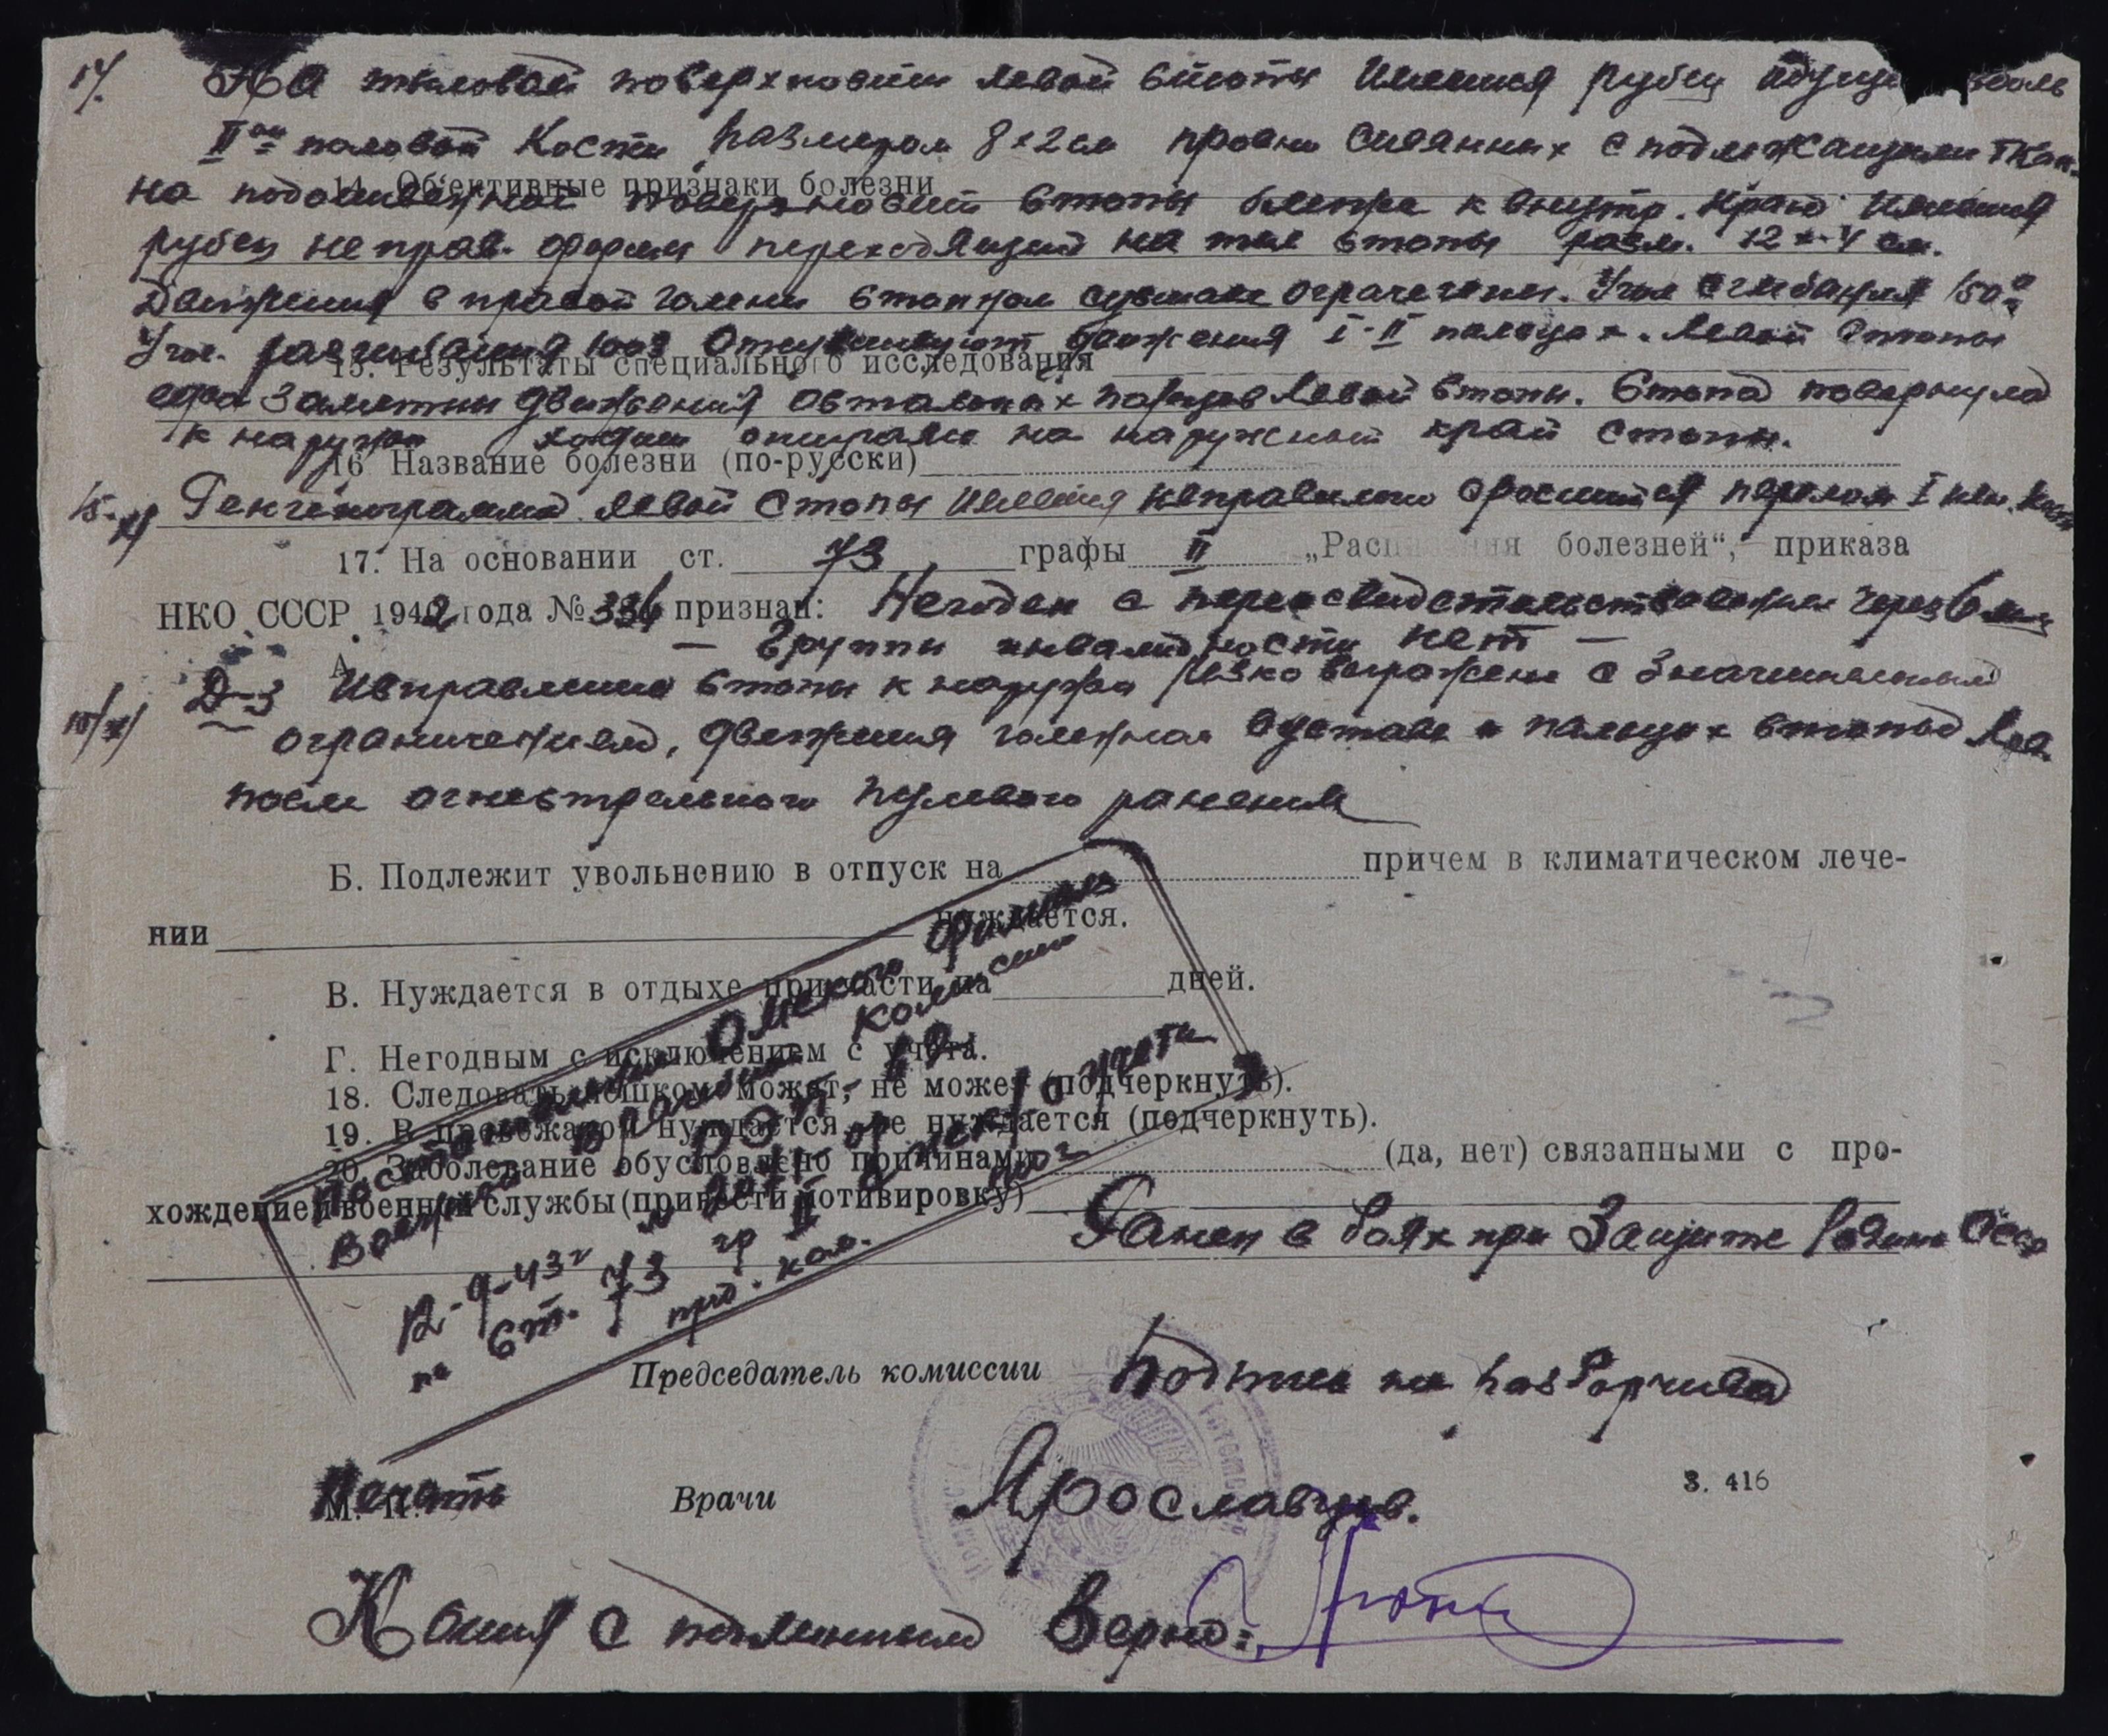 14. На тыловой поверхности левой стопы имеется рубец идущий вдоль
II ой размером 8×2 см спаянных с подлежащими ткан.
14. Объективные признаки болезни
на подошвенной поверхности стопы ближе к внутр. краю имеется
рубец неправ. формы переходящий на тыл стопы разм. 12×4 см.
Движения в правой голени стопном суставе ограничены. Угол сгибания 150°
Угол. разгибания 100° Отсутствуют движения I-II пальцах. Левой стопы
15. Результаты специального исследования
едва заметны движения остальных пальцев левой стопы. Стопа повернула
к наружи ходит опираясь на наружный край стопы.
16 Название болезни (по-русски)
15. Рентгенограмма левой стопы имеется неправильно сросшийся перелом I
17. На основании ст. 73 графы II „Расписания болезней“, приказа
НКО СССР 1942 года № 336 признан: Негоден с переосвидетельствованием через 6 мц
— Группы инвалидности нет —
А.
Д-3 Исправление стопы к наружи резко выражено с значительным
ограничением, движения голенном суставе и пальцах стопы лев.
после огнестрельного пулевого ранения
Б. Подлежит увольнению в отпуск на причем в климатическом лече-
нии нуждается.
В. Нуждается в отдыхе при части на дней.
Г. Негодным с исключением с учета.
18. Следовать пешком может, не может (подчеркнуть).
19. В провожатом нуждается, не нуждается (подчеркнуть).
20. Заболевание обусловлено причинами (да, нет) связанными с про-
хождением военной службы (привести мотивировку)
Ранен в боях при защите Родины СССР
Постановлением Омского филиала
Врачебной комиссии
12-9-43г
по ст. 73 гр II с учета
Председатель комиссии Подпись не разборчива
Печать
М. П. Врачи Ярославцев.
З. 416
Копия с подлинным Верно: